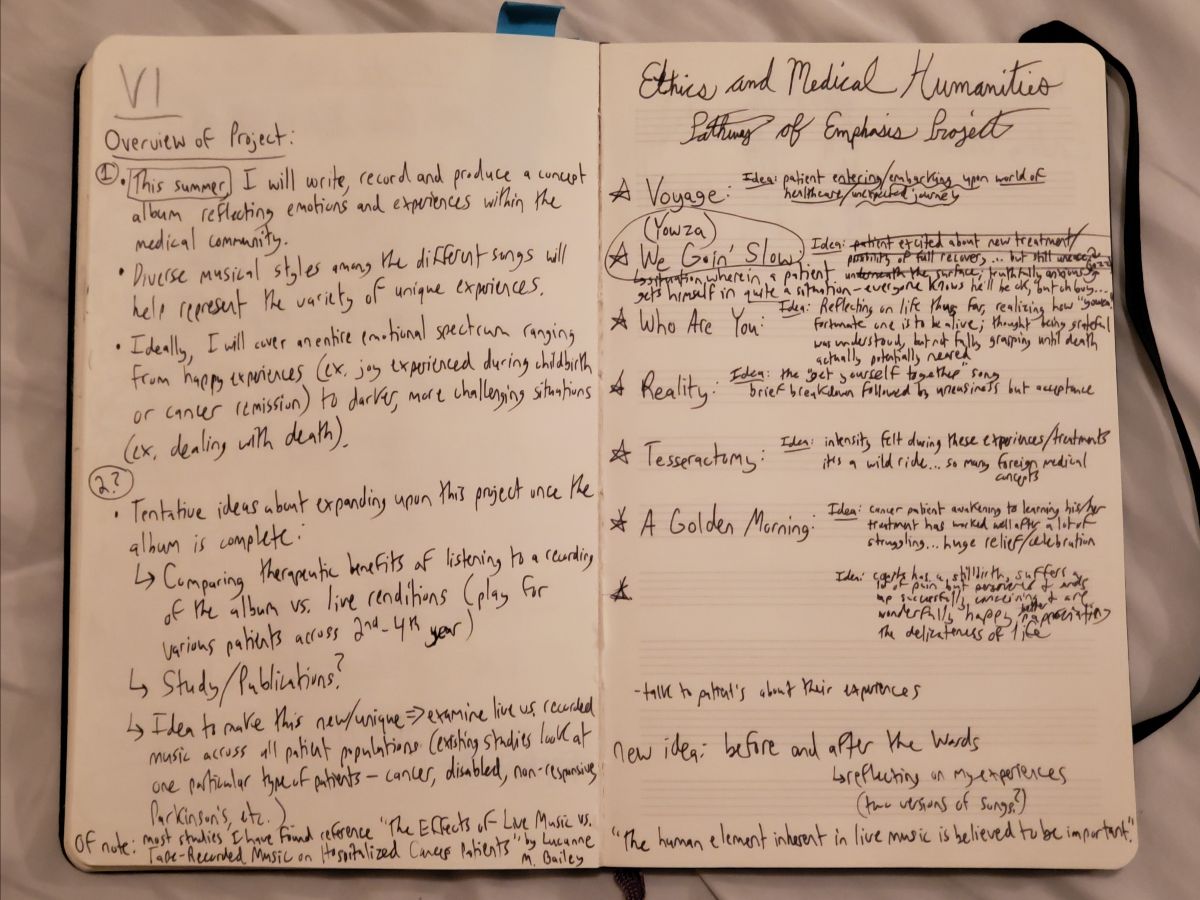 VI
Overview of Project:
① • This summer, I will write, record and produce a concept
album reflecting emotions and experiences within the
medical community.
• Diverse musical styles among the different songs will
help represent the variety of unique experiences.
• Ideally, I will cover an entire emotional spectrum ranging
from happy experiences (ex. joy experienced during childbirth
or cancer remission) to darker, more challenging situations
(ex. dealing with death).
2.?
• Tentative ideas about expanding upon this project once the
album is complete:
↳ Comparing therapeutic benefits of listening to a recording
of the album vs. live renditions (play for
various patients across 2nd-4th year)
↳ Study/Publications?
↳ Idea to make this new/unique => examine live vs. recorded
music across all patient populations (existing studies look at
one particular type of patients - cancer, disabled, non-responsive,
Parkinson's, etc.)
Of note: most studies I have found reference "The Effects of Live Music vs.
Tape-Recorded Music on Hospitalized Cancer Patients" by Lucanne
M. Bailey
Ethics and Medical Humanities
Pathway of Emphasis Project
☆ Voyage: Idea: patient entering/embarking upon world of
healthcare/unexpected journey
(Yowza)
☆ We Goin' Slow: Idea: patient excited about new treatment/
possibility of full recovery... but still
situation wherein a patient underneath the surface; truthfully anxious
gets himself in quite a situation - everyone knows he'll be ok, but oh boy...
"yowza"
☆ Who Are You: Idea: Reflecting on life thus far, realizing how
fortunate one is to be alive; thought being grateful
was understood, but not fully grasping until death
actually potentially neared
☆ Reality: Idea: the "get yourself together" song
brief breakdown followed by uneasiness but acceptance
☆ Tesseractomy: Idea: intensity felt during these experiences/treatments
it's a wild ride... so many foreign medical
concepts
☆ A Golden Morning: Idea: cancer patient awakening to learning his/her
treatment has worked well after a lot of
struggling... huge relief/celebration
☆ Idea: couple has a stillbirth, suffers a
lot of pain but perseveres & ends
up successfully conceiving & are
wonderfully happy, better appreciating
the delicateness of life
-talk to patient's about their experiences
new idea: before and after the Words
↳ reflecting on my experiences
(two versions of songs?)
"The human element inherent in live music is believed to be important."